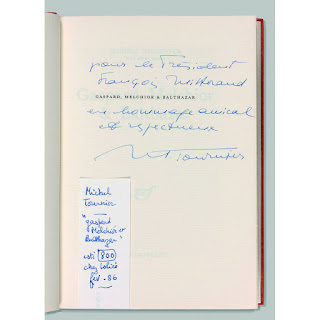 pour le Président
François Mitterrand
GASPARD, MELCHIOR & BALTHAZAR
en hommage amical
et respectueux
M Tournier
Michel
Tournier
"gaspard
Melchior et
Balthazar"
esti 800
chez
fev. 86